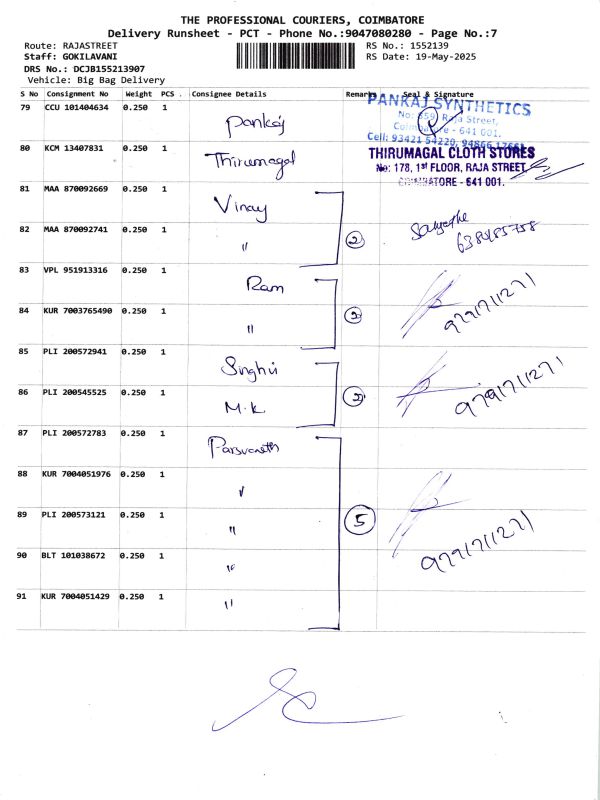 THE PROFESSIONAL COURIERS, COIMBATORE
Delivery Runsheet - PCT - Phone No.:9047080280 - Page No.:7
Route: RAJASTREET RS No.: 1552139
Staff: GOKILAVANI RS Date: 19-May-2025
DRS No.: DCJB155213907
Vehicle: Big Bag Delivery
S No Consignment No Weight PCS . Consignee Details Remarks Seal & Signature
79 CCU 101404634 0.250 1 Pankaj
PANKAJ SYNTHETICS
No: 559, Raja Street,
Coimbatore - 641 001.
Cell: 93421 54220,
80 KCM 13407831 0.250 1 Thirumagal
THIRUMAGAL CLOTH STORES
No: 178, 1st FLOOR, RAJA STREET,
COIMBATORE - 641 001.
81 MAA 870092669 0.250 1 Vinay
82 MAA 870092741 0.250 1 " 2
83 VPL 951913316 0.250 1 Ram
84 KUR 7003765490 0.250 1 " 2
85 PLI 200572941 0.250 1 Singhvi
86 PLI 200545525 0.250 1 M.K 2
87 PLI 200572783 0.250 1 Parsvanath
88 KUR 7004051976 0.250 1 "
89 PLI 200573121 0.250 1 " 5
90 BLT 101038672 0.250 1 "
91 KUR 7004051429 0.250 1 "